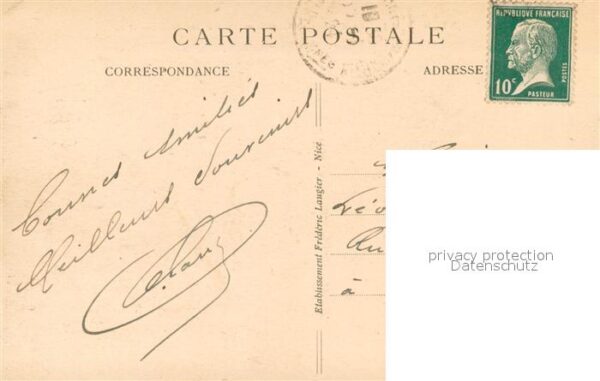 CARTE POSTALE
CORRESPONDANCE
ADRESSE
RÉPUBLIQUE FRANÇAISE
POSTES
10c
PASTEUR
Bonnes Amitiés
Meilleurs Souvenirs
Etablissement Frédéric Laugier - Nice
Léo
Ru
à
privacy protection
Datenschutz